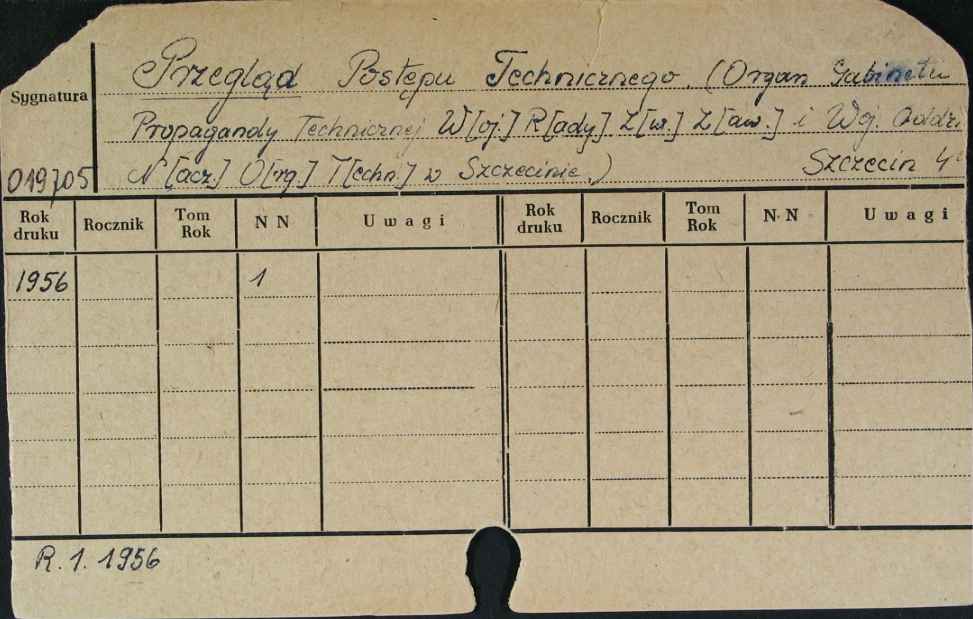 Przegląd Postępu Technicznego. (Organ Gabinetu
Sygnatura
Propagandy Technicznej W[oj.] R[ady] Z[w.] Z[aw.] i Woj. Oddz.
019705
N[acz.] O[rg.] T[echn.] w Szczecinie.) Szczecin 4°
Rok druku Rocznik Tom Rok N N Uwagi Rok druku Rocznik Tom Rok N N Uwagi
1956 1
R. 1. 1956